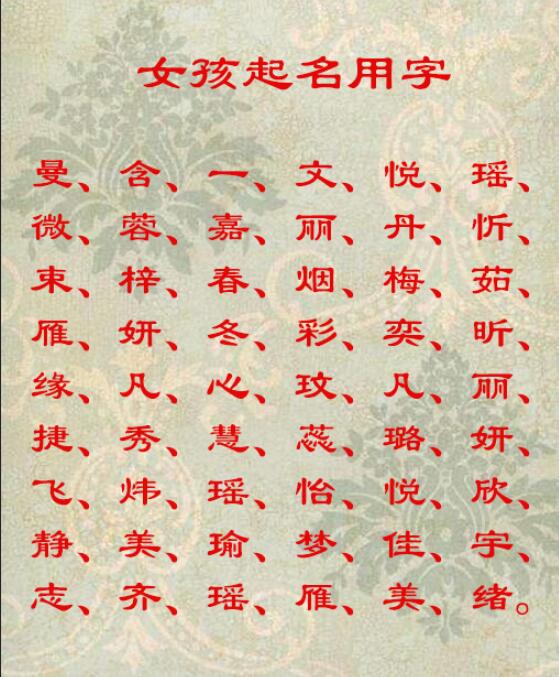 女孩起名用字
曼、含、一、文、悦、瑶、
微、蓉、嘉、丽、丹、忻、
束、梓、春、烟、梅、茹、
雁、妍、冬、彩、奕、昕、
缘、凡、心、玟、凡、丽、
捷、秀、慧、蕊、璐、妍、
飞、炜、瑶、怡、悦、欣、
静、美、瑜、梦、佳、宇、
志、齐、瑶、雁、美、绪。